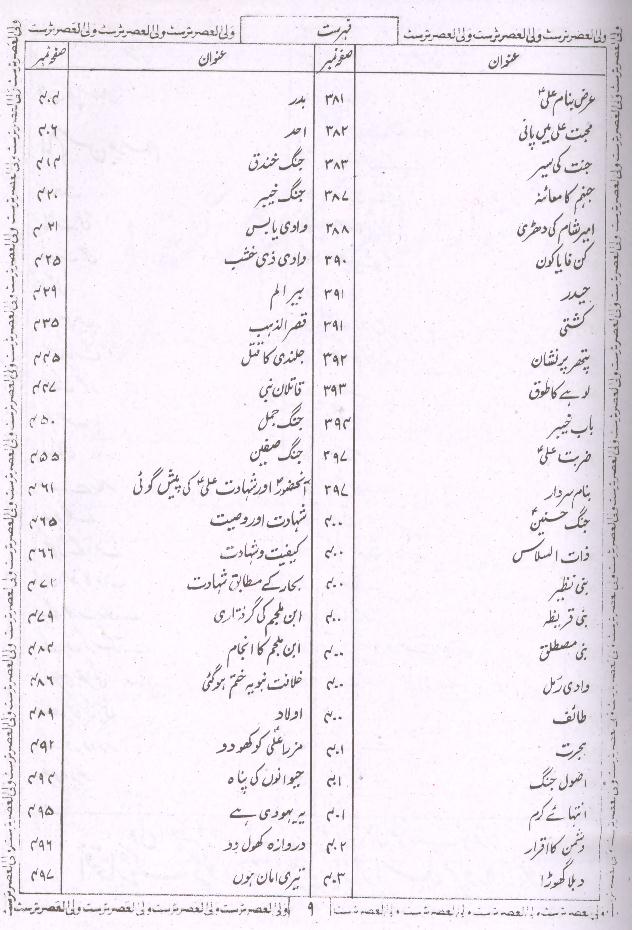 فہرست
عنوان صفحہ نمبر عنوان صفحہ نمبر
عرض بنام علیؑ ۳۸۱
محبت علی میں پانی ۳۸۲
جنت کی سیر ۳۸۳
جہنم کا معائنہ ۳۸۷
امیر شام کی دھڑی ۳۸۸
کن فایاکون ۳۹۰
حیدر ۳۹۱
کشتی ۳۹۱
پتھر پر نشان ۳۹۲
لوہے کا طوق ۳۹۳
باب خیبر ۳۹۴
ضربت علیؑ ۳۹۷
بنام سردار ۳۹۷
جنگ حنین ۴۰۰
ذات السلاسل ۴۰۰
بنی نظیر ۴۰۰
بنی قریظہ ۴۰۰
بنی مصطلق ۴۰۰
وادی رمل ۴۰۰
طائف ۴۰۰
ہجرت ۴۰۱
اصول جنگ ۴۰۱
انتہائے کرم ۴۰۱
دشمن کا اقرار ۴۰۲
دبلا گھوڑا ۴۰۳
بدر ۴۰۴
احد ۴۰۶
جنگ خندق ۴۱۴
جنگ خیبر ۴۲۰
وادی یابس ۴۲۱
وادی ذی خشب ۴۲۵
بیر الم ۴۲۹
قصر الذہب ۴۳۵
جلندی کا قتل ۴۴۵
قاتلان نبی ۴۴۷
جنگ جمل ۴۵۰
جنگ صفین ۴۵۵
آنحضورؐ اور شہادت علیؑ کی پیش گوئی ۴۶۱
شہادت اور وصیت ۴۶۵
کیفیت و شہادت ۴۶۶
بحار کے مطابق شہادت ۴۷۲
ابن ملجم کی گرفتاری ۴۷۹
ابن ملجم کا انجام ۴۸۴
خلافت نبویہ ختم ہوگئی ۴۸۶
اولاد ۴۸۹
مزار علیؑ کو کھود دو ۴۹۲
حیوانوں کی پناہ ۴۹۴
یہ یہودی ہے ۴۹۵
دروازہ کھول دو ۴۹۶
تیری امان ہوں ۴۹۷
۹
ولی العصر ٹرسٹ ولی العصر ٹرسٹ ولی العصر ٹرسٹ